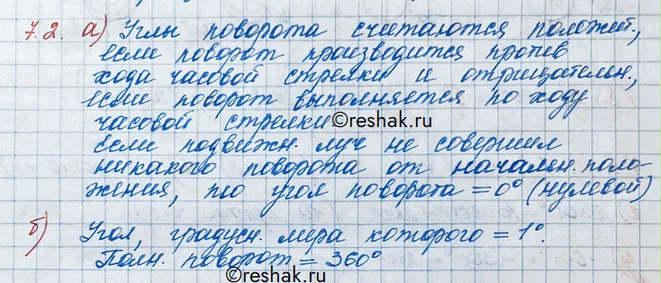 7.2. а) Углы поворота считаются положит.,
если поворот производится против
хода часовой стрелки и отрицательн.,
если поворот выполняется по ходу
часовой стрелки
©reshak.ru
Если подвижн. луч не совершил
никакого поворота от начален. поло-
жения, то угол поворота = 0° (нулевой)
б) Угол, градусн. мера которого = 1°.
Полн. поворот = 360°
©reshak.ru